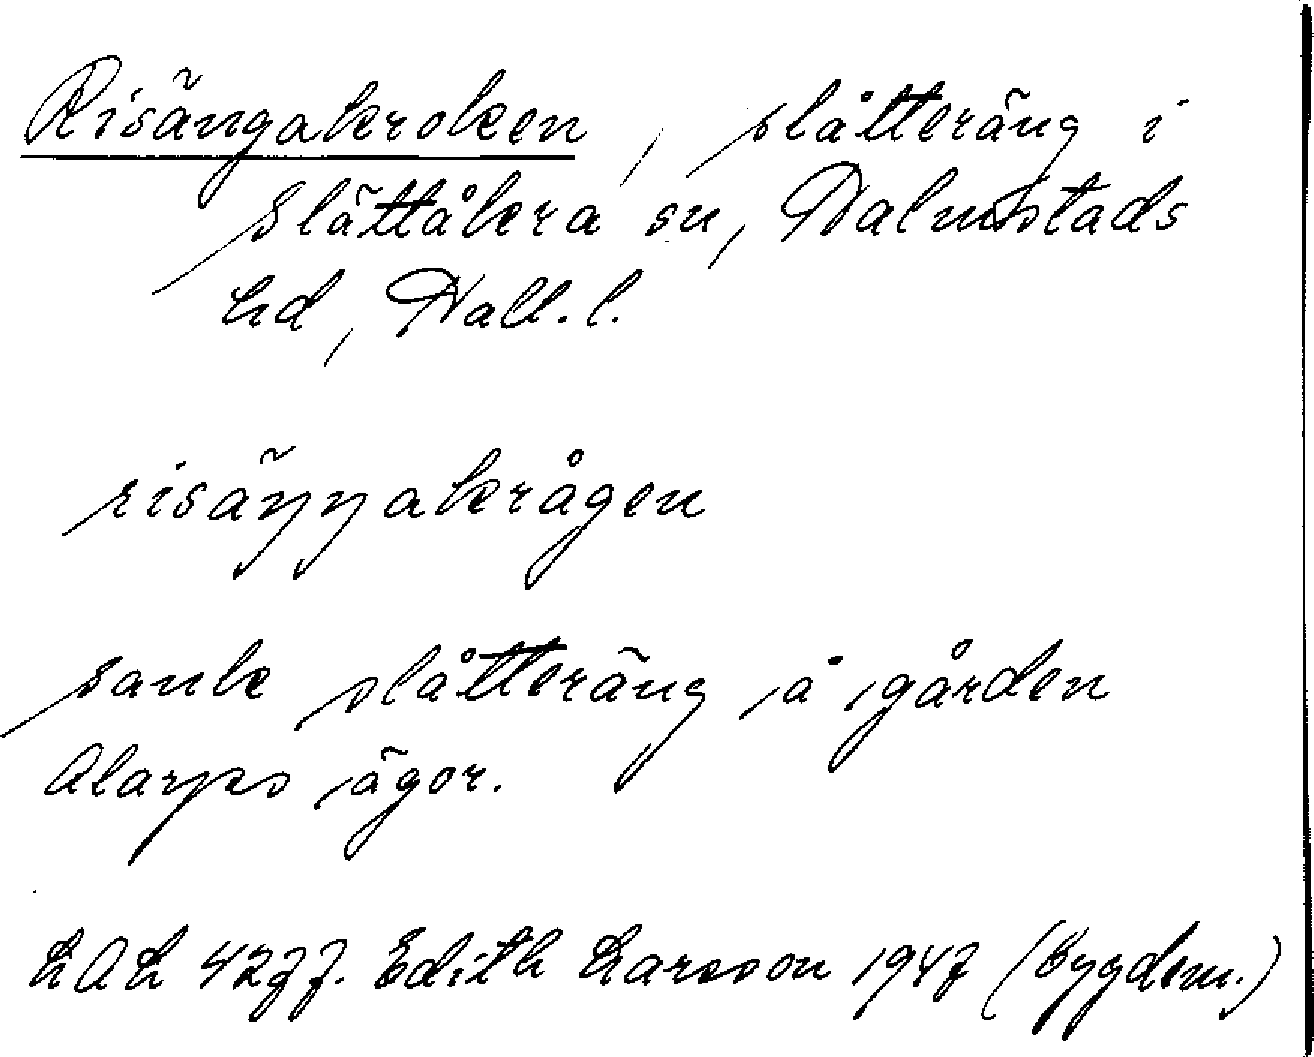 Risängakroken, slåtteräng i
Slättåkra sn, Halmstads
hd, Hall. l.
risäŋŋakrågen
sank slåtteräng å gården
Alarps ägor.
LAL 4277. Edith Larsson 1947 (bygdem.)